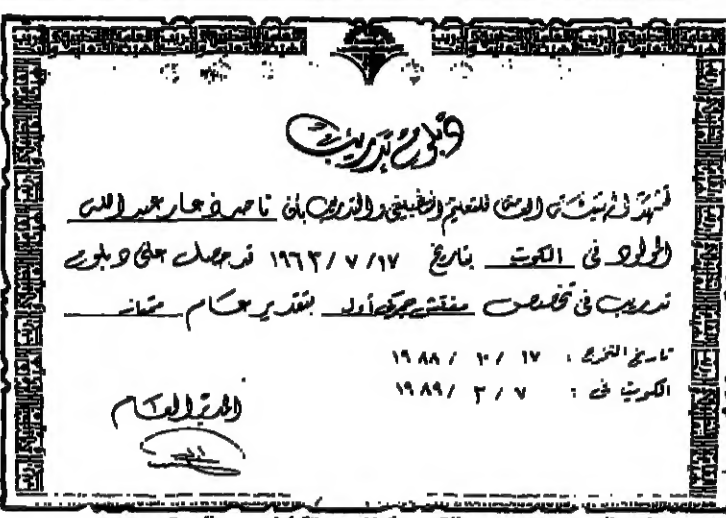 دبلوم تدريب
تشهد الهيئة العامة للتعليم التطبيقي والتدريب بأن ناصر عبد الله
المولود في الكويت بتاريخ ١٧/ ٧/ ١٩٦٣ قد حصل على دبلوم
تدريب في تخصص مفتش جمركي أول بتقدير عام ممتاز
تاريخ التخرج : ١٧ / ١٠ / ١٩٨٨
الكويت في : ٧ / ٢ / ١٩٨٩
المدير العام